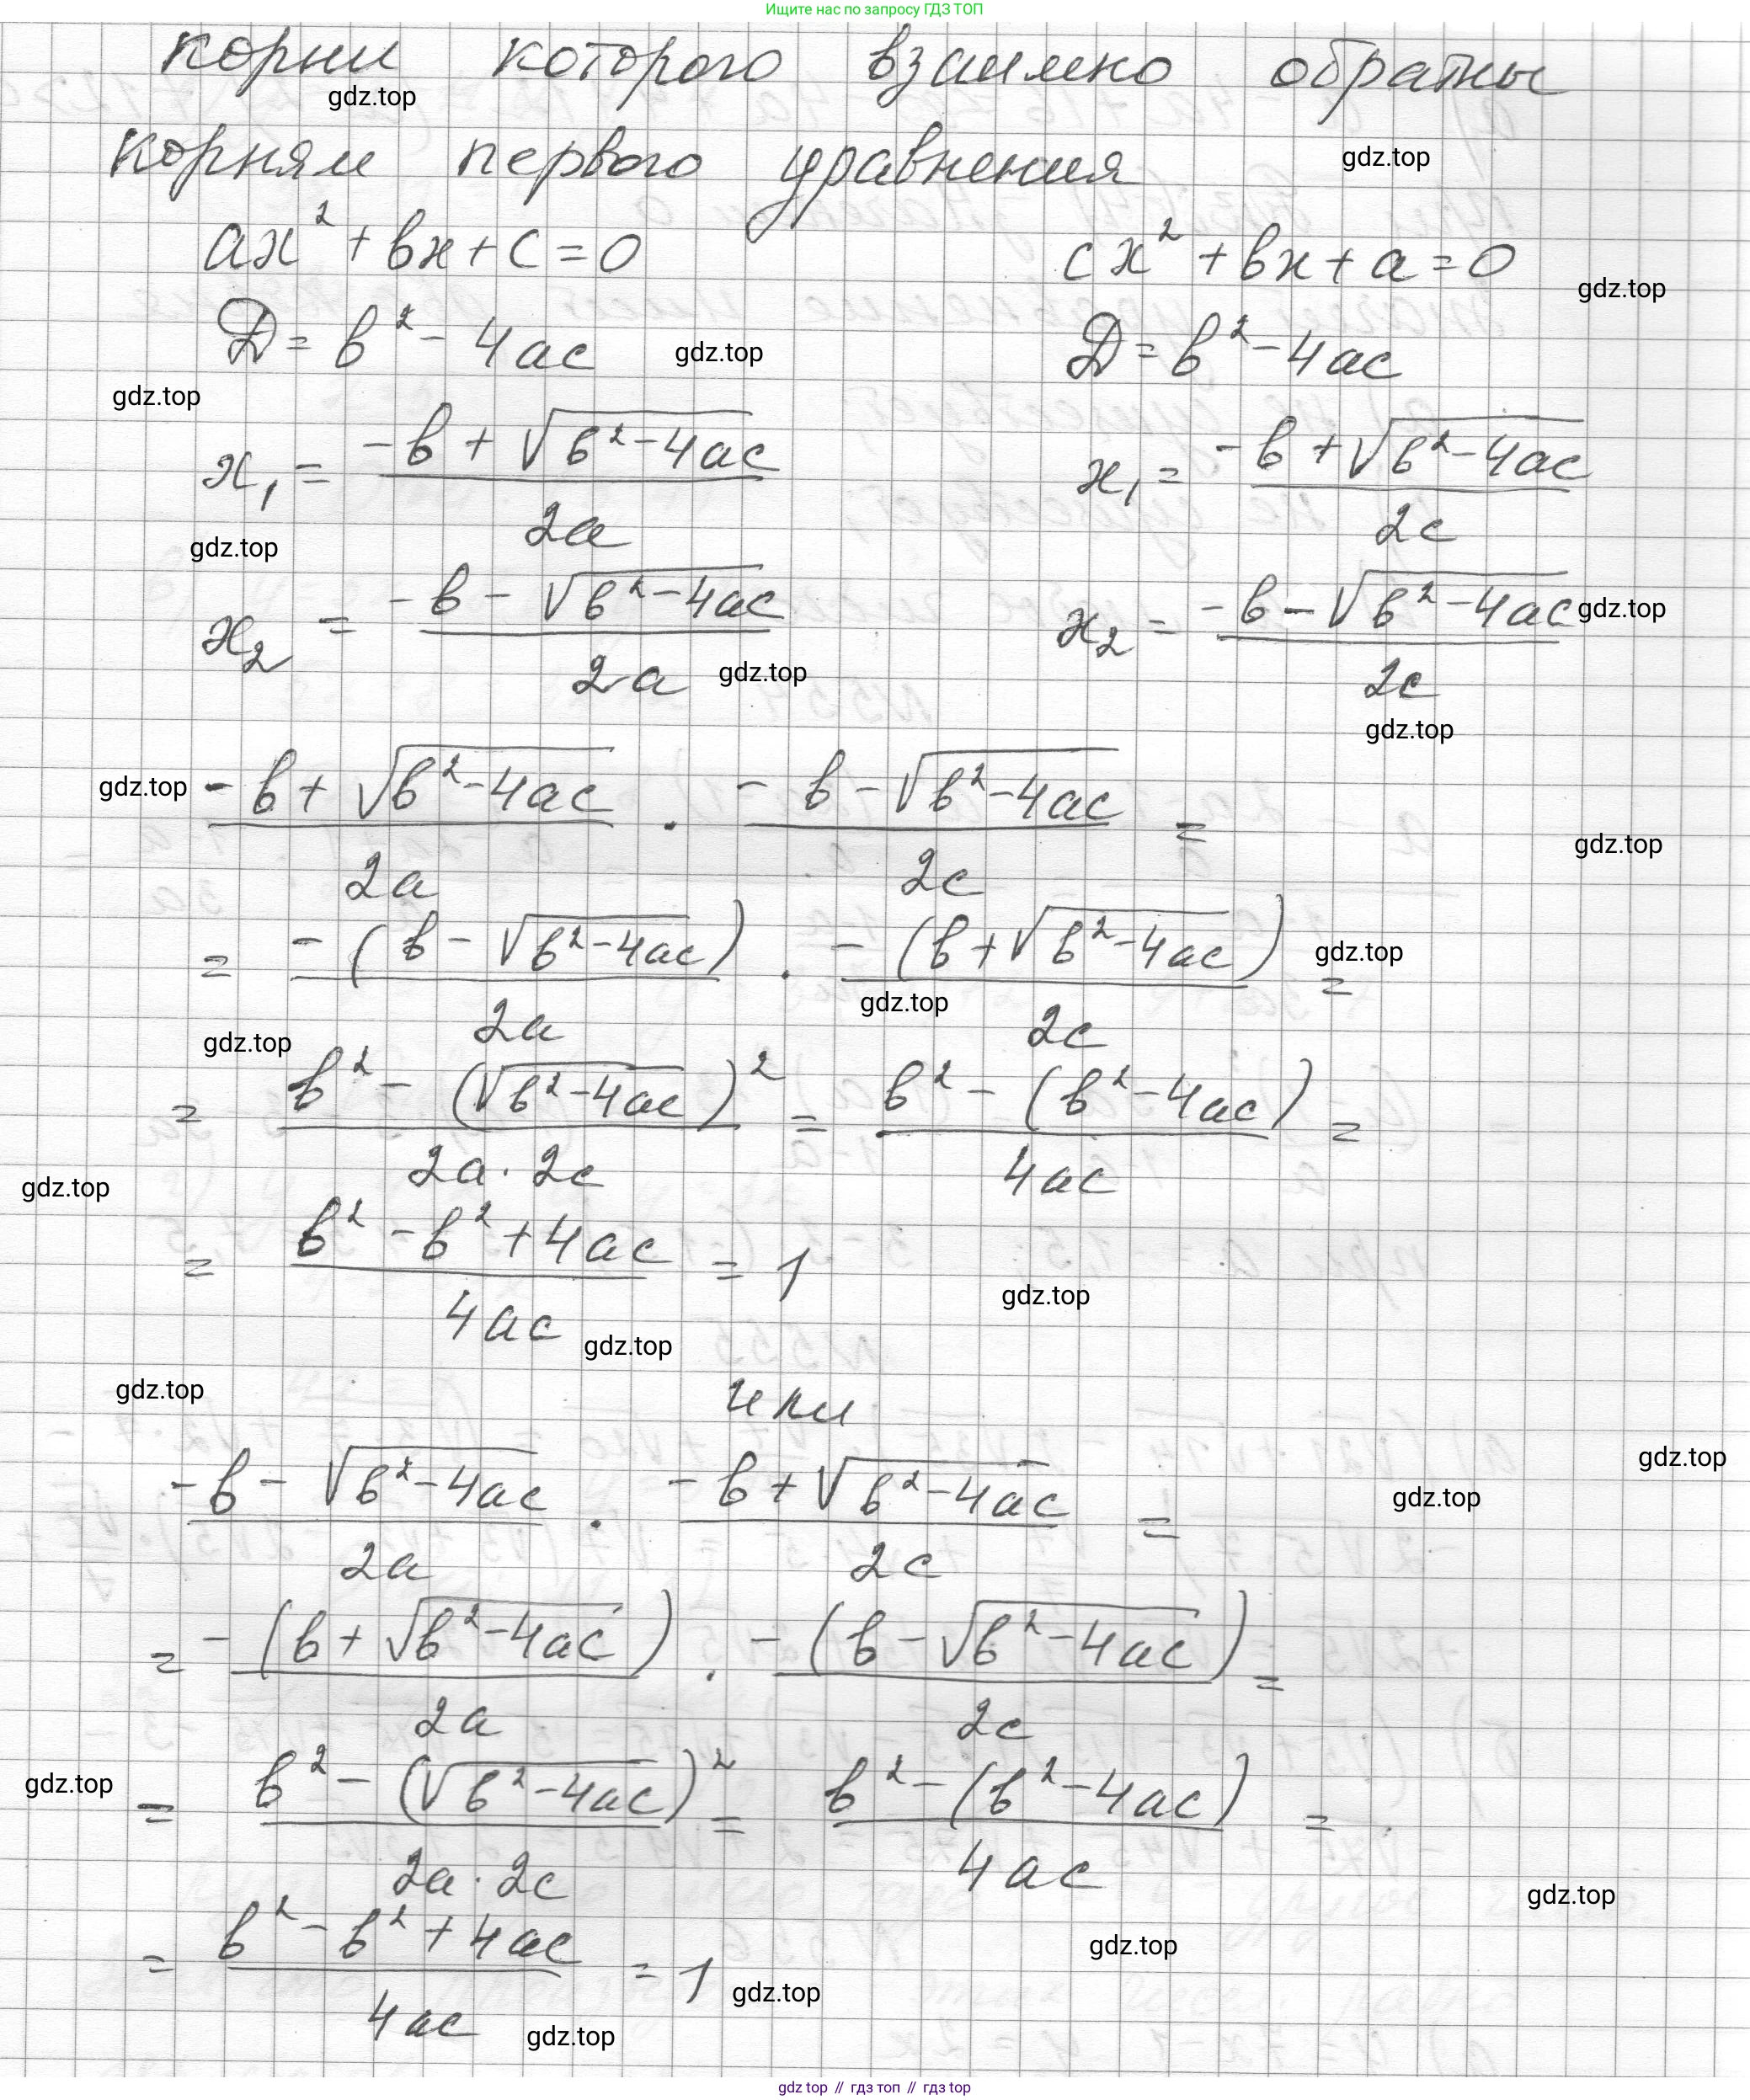 Ищите нас по запросу ГДЗ ТОП
корни которого взаимно обратны
gdz.top
корням первого уравнения
gdz.top
ax² + bx + c = 0    cx² + bx + a = 0
gdz.top
D = b² - 4ac    gdz.top    D = b² - 4ac
gdz.top
x₁ = (-b + √(b² - 4ac)) / 2a    x₁ = (-b + √(b² - 4ac)) / 2c
gdz.top
x₂ = (-b - √(b² - 4ac)) / 2a    x₂ = (-b - √(b² - 4ac)) / 2c    gdz.top
gdz.top
gdz.top
gdz.top    (-b + √(b² - 4ac)) / 2a · (-b - √(b² - 4ac)) / 2c =
gdz.top
= -(b - √(b² - 4ac)) / 2a · -(b + √(b² - 4ac)) / 2c =    gdz.top
gdz.top
gdz.top
= (b² - (√(b² - 4ac))²) / 2a · 2c = (b² - (b² - 4ac)) / 4ac =
gdz.top
= (b² - b² + 4ac) / 4ac = 1
gdz.top
gdz.top
gdz.top
или
gdz.top
(-b - √(b² - 4ac)) / 2a · (-b + √(b² - 4ac)) / 2c =
gdz.top
= -(b + √(b² - 4ac)) / 2a · -(b - √(b² - 4ac)) / 2c =
gdz.top
= (b² - (√(b² - 4ac))²) / 2a · 2c = (b² - (b² - 4ac)) / 4ac =
gdz.top
= (b² - b² + 4ac) / 4ac = 1
gdz.top
gdz.top
gdz.top
gdz top // гдз топ // гдз top